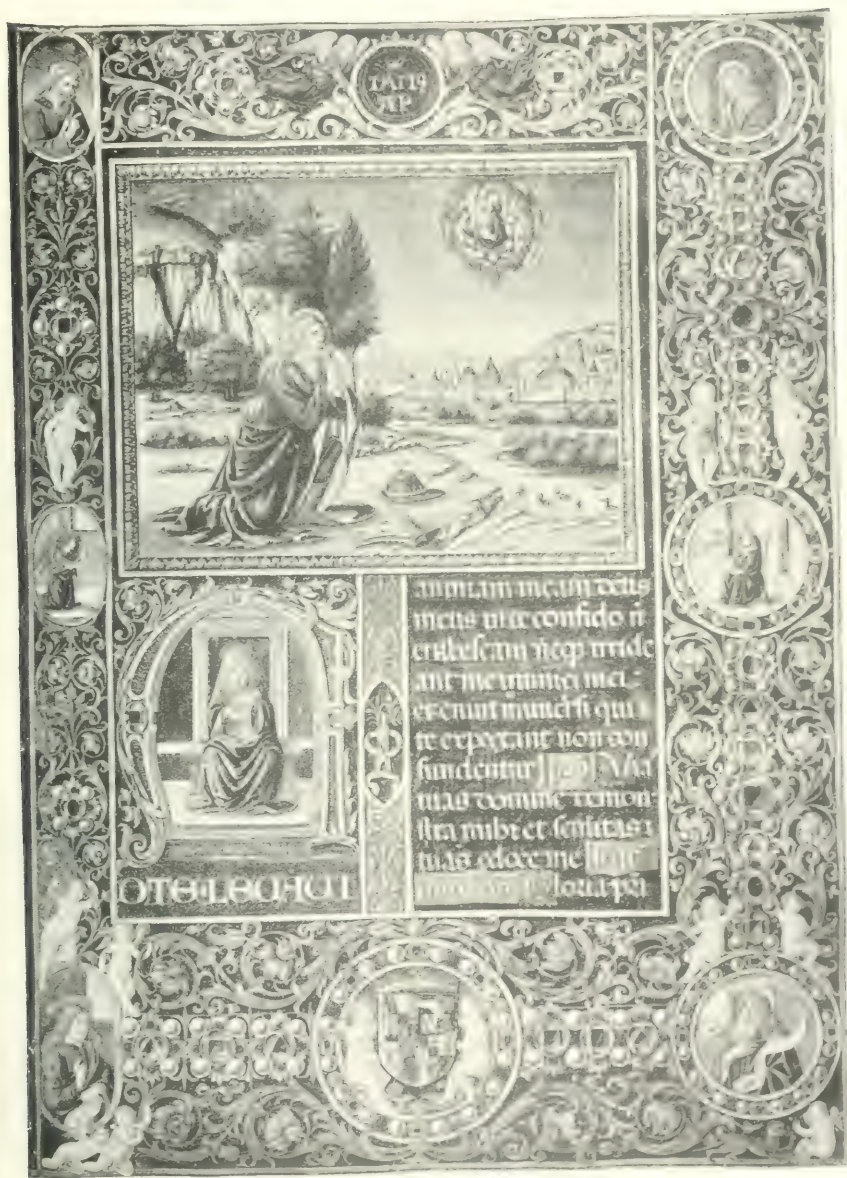 DTE·LEUAUI
animam meam deus
meus in te confido n̄
erubescam neqȝ irride
ant me inimici mei
etenim uniuersi qui
te expectant non con
fundentur Vias
tuas domine demon
stra mihi et semitas
tuas edoce me